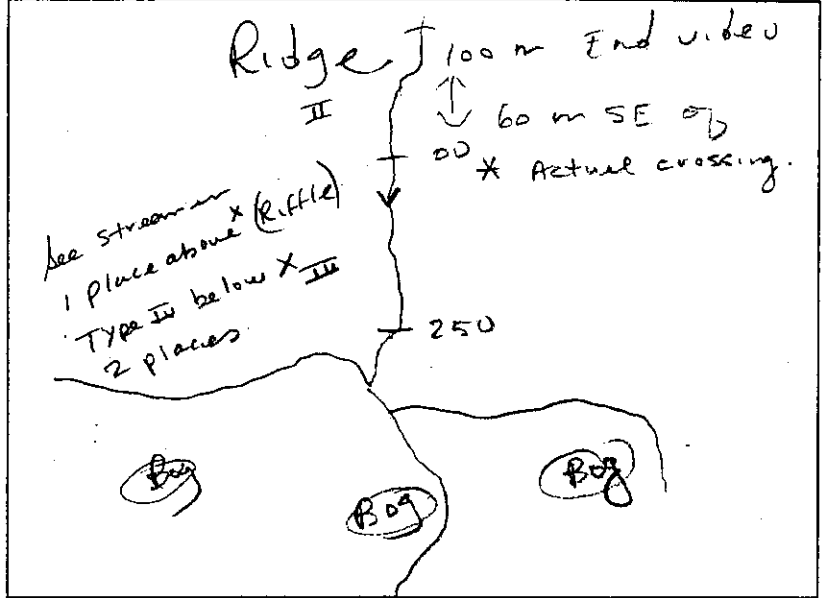 Ridge
II
100 m End video
60 m SE of
00 * Actual crossing.
See stream in
1 place above x (Riffle)
Type IV below x
III
2 places
250
Bog
Bog
Bog